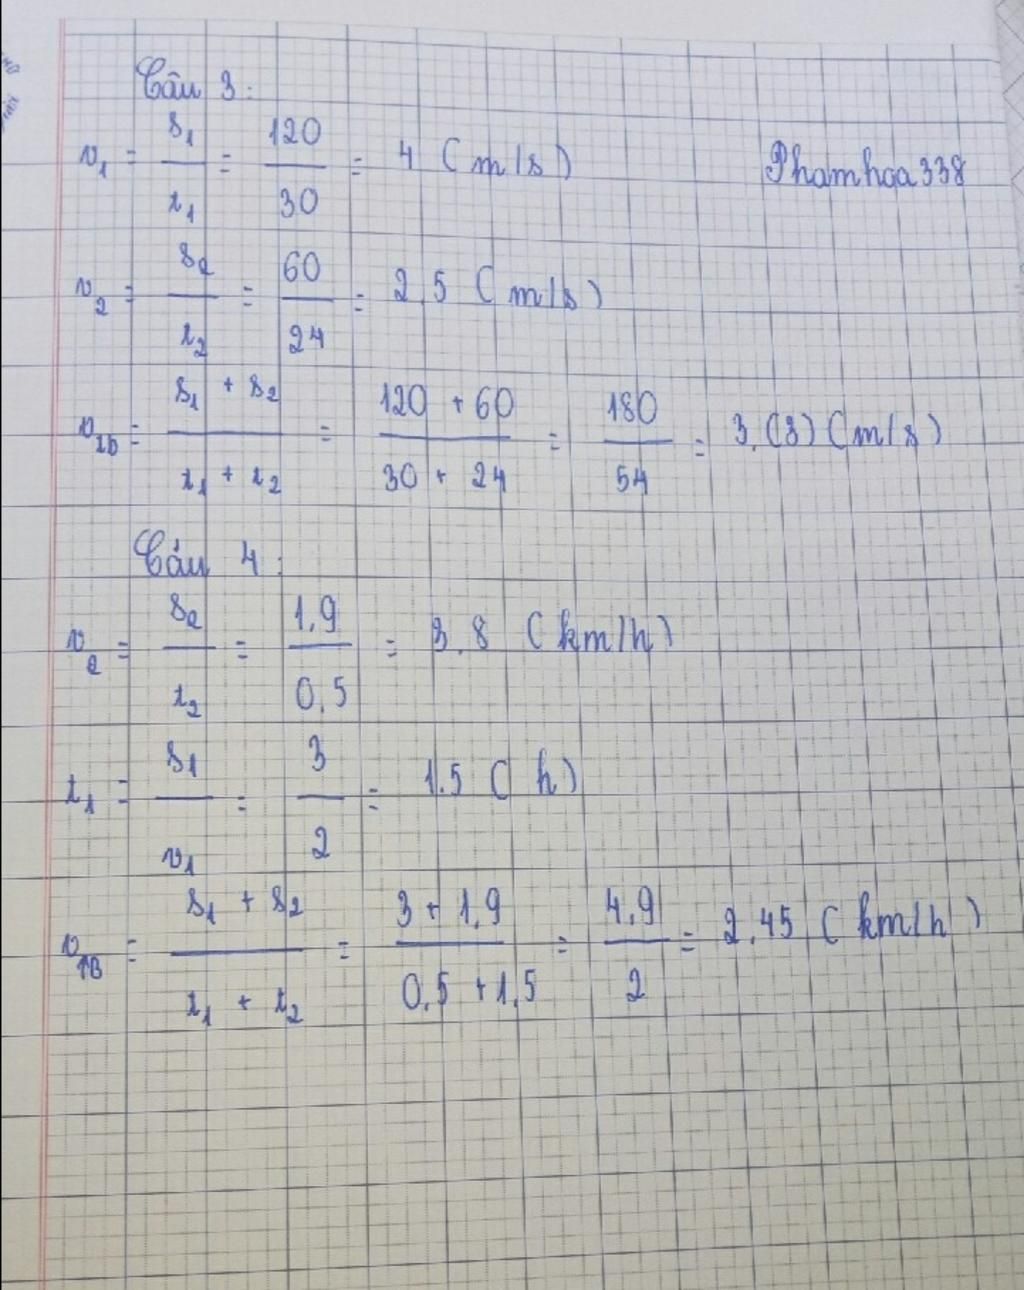 Câu 3:
v₁ = s₁/t₁ = 120/30 = 4 (m/s)
Phamhoa338
v₂ = s₂/t₂ = 60/24 = 2,5 (m/s)
vtb = (s₁ + s₂)/(t₁ + t₂) = (120 + 60)/(30 + 24) = 180/54 = 3,(3) (m/s)
Câu 4:
v₂ = s₂/t₂ = 1,9/0,5 = 3,8 (km/h)
t₁ = s₁/v₁ = 3/2 = 1,5 (h)
vTB = (s₁ + s₂)/(t₁ + t₂) = (3 + 1,9)/(0,5 + 1,5) = 4,9/2 = 2,45 (km/h)